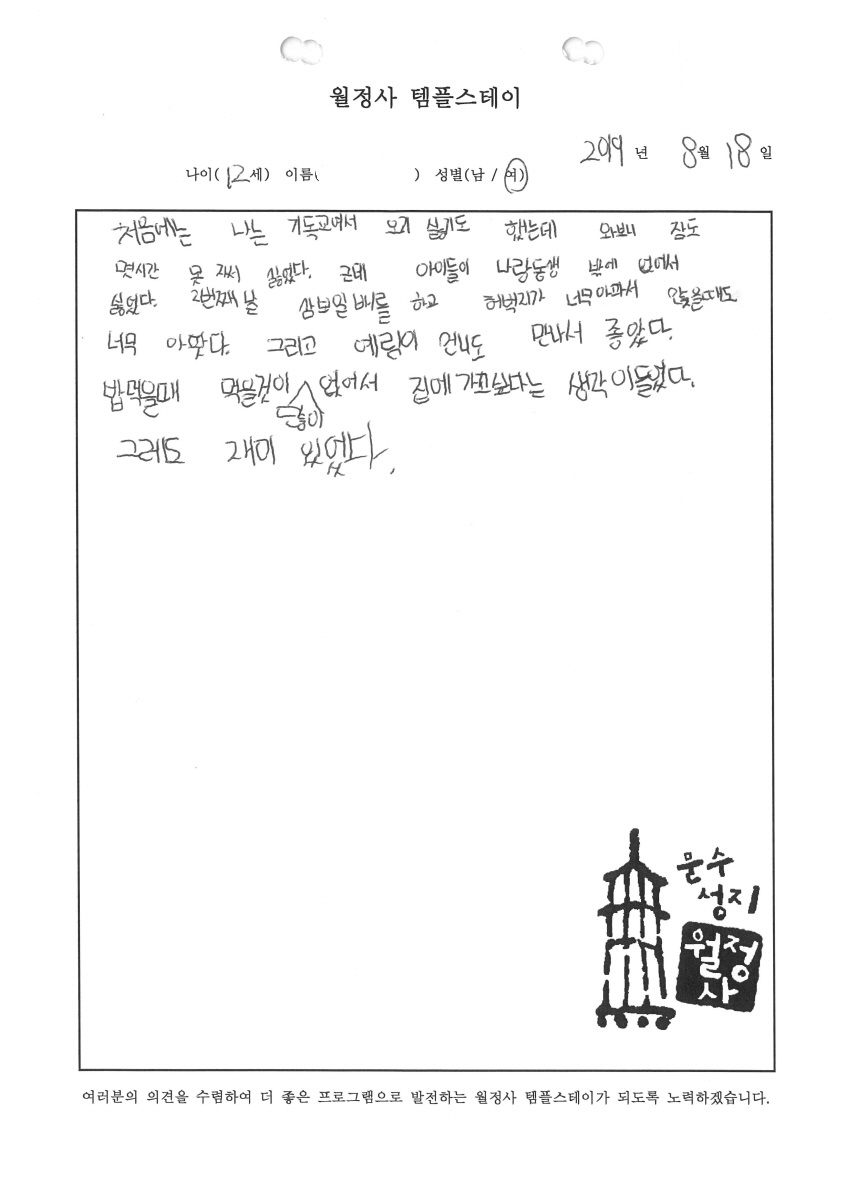 월정사 템플스테이
2019 년 8월 18 일
나이(12세) 이름( ) 성별(남 / 여)
처음에는 나는 기독교여서 오기 싫기도 했는데 와보니 잠도
몇시간 못 자써 싫었다. 근데 아이들이 나랑동생 밖에 없어서
싫었다. 2번째 날 삼보일배를 하고 허벅지가 너무아파서 앉을때도
너무 아팠다. 그리고 예림이 언니도 만나서 좋았다.
밥먹을때 먹을것이 없어서 집에 가고싶다는 생각이들었다.
그레도 재미 있었다.
문수
성지
월정
사
여러분의 의견을 수렴하여 더 좋은 프로그램으로 발전하는 월정사 템플스테이가 되도록 노력하겠습니다.